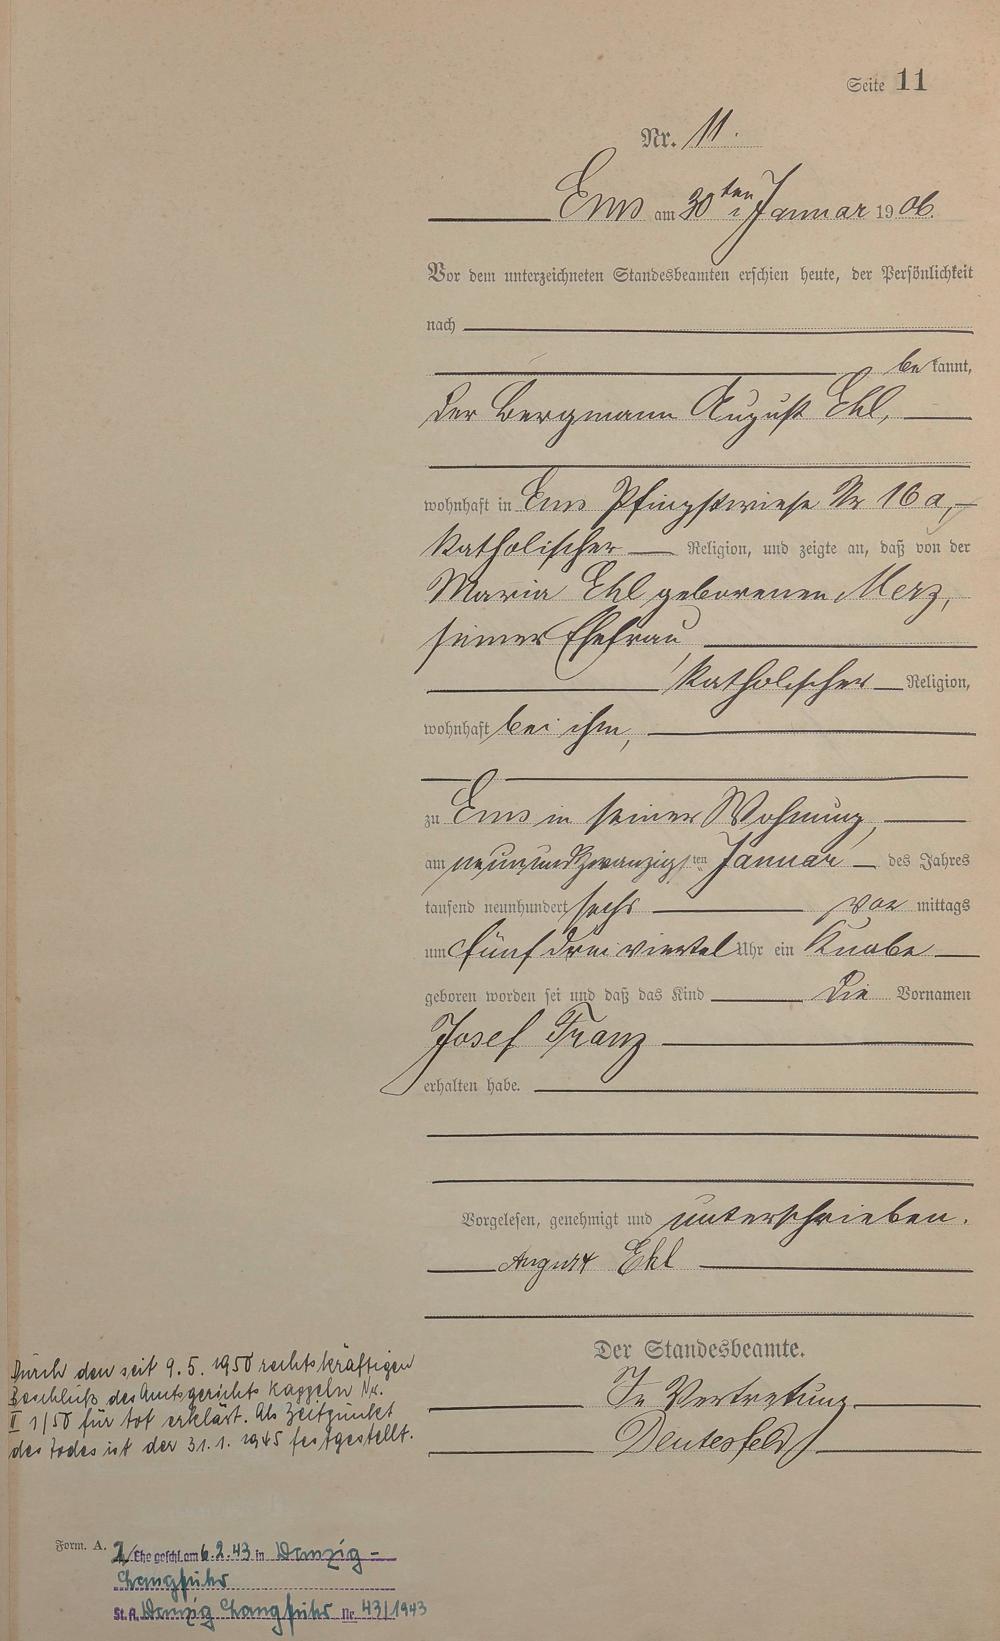 Seite 11
Nr. 11.
Ems am 30ten Januar 1906.
Vor dem unterzeichneten Standesbeamten erschien heute, der Persönlichkeit
nach
bekannt,
der Bergmann August Ehl,
wohnhaft in Ems Pfingstwiese Nr 16a,
katholischer Religion, und zeigte an, daß von der
Maria Ehl geborenen Merz,
seiner Ehefrau,
katholischer Religion,
wohnhaft bei ihm,
zu Ems in seiner Wohnung,
am neunundzwanzigsten Januar des Jahres
tausend neunhundert sechs vormittags
um fünf drei viertel Uhr ein Knabe
geboren worden sei und daß das Kind die Vornamen
Josef Franz
erhalten habe.
Vorgelesen, genehmigt und unterschrieben.
August Ehl
Der Standesbeamte.
In Vertretung
Deutesfeld
Durch den seit 9.5.1950 rechtskräftigen
Beschluß des Amtsgerichts Kappeln Nr.
II 1/50 für tot erklärt. Als Zeitpunkt
des Todes ist der 31.1.1945 festgestellt.
Form. A.
1/ Ehe geschl. am 6.2.43 in Danzig-
Langfuhr
St. A. Danzig Langfuhr Nr. 43/1943